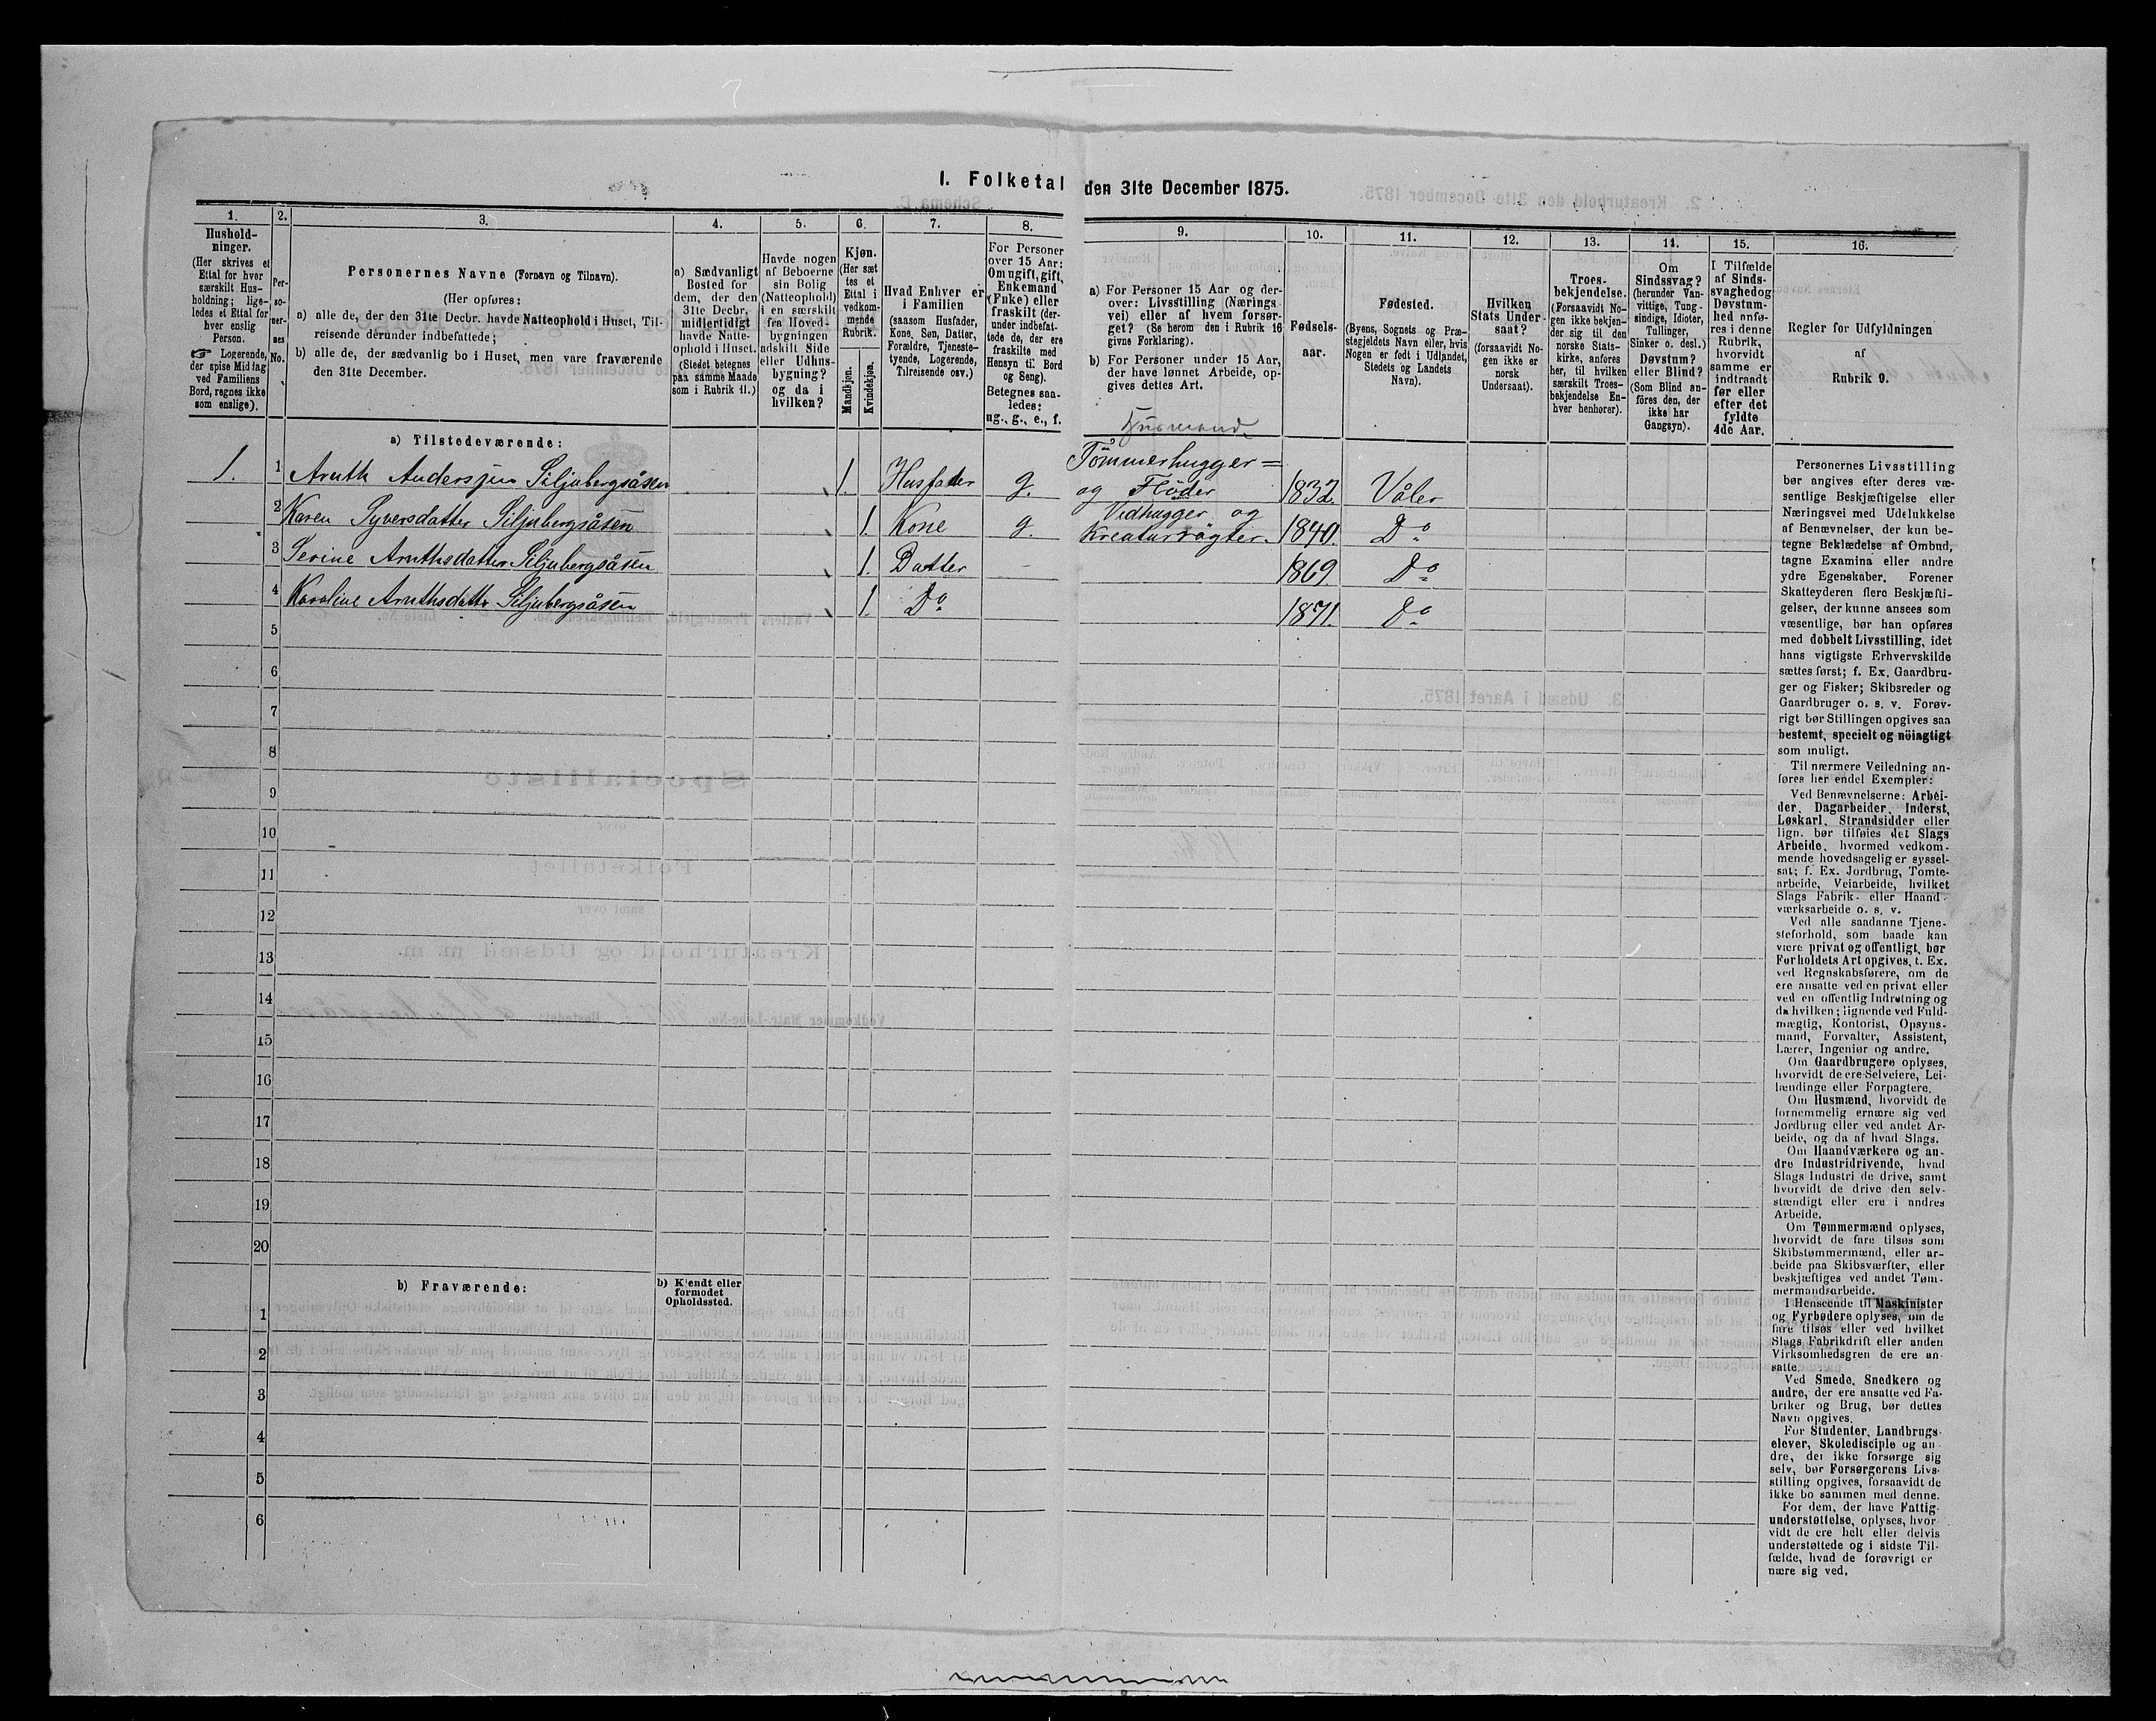 I. Folketal den 31te December 1875.
1.
Hushold-
ninger.
(Her skrives et
Ettal for hver
særskilt Hus-
holdning; lige-
ledes et Ettal for
hver enslig
Person.
☞ Logerende,
der spise Middag
ved Familiens
Bord, regnes ikke
som enslige).
2.
Per-
so-
ner-
nes
No.
3.
Personernes Navne (Fornavn og Tilnavn).
(Her opføres:
a) alle de, der den 31te Decbr. havde Natteophold i Huset, Til-
reisende derunder indbefattede;
b) alle de, der sædvanlig bo i Huset, men vare fraværende
den 31te December.
4.
a) Sædvanligt
Bosted for
dem, der den
31te Decbr.
midlertidigt
havde Natte-
ophold i Huset.
(Stedet betegnes
paa samme Maade
som i Rubrik 11.)
5.
Havde nogen
af Beboerne
sin Bolig
(Natteophold)
i en særskilt
fra Hoved-
bygningen
adskilt Side
eller Udhus-
bygning?
og da i
hvilken?
6.
Kjøn.
(Her sæt
tes et
Ettal i
vedkom-
mende
Rubrik.
Mandkjøn.
Kvindekjøn.
7.
Hvad Enhver er
i Familien
(saasom Husfader,
Kone, Søn, Datter,
Forældre, Tjeneste-
tyende, Logerende,
Tilreisende osv.)
8.
For Personer
over 15 Aar:
Om ugift, gift,
Enkemand
(Enke) eller
fraskilt (der-
under indbefat-
tede de, der ere
fraskilte med
Hensyn til Bord
og Seng).
Betegnes saa-
ledes:
ug., g., e., f.
9.
a) For Personer 15 Aar og der-
over: Livsstilling (Nærings
vei) eller af hvem forsør-
get? (Se herom den i Rubrik 16
givne Forklaring).
b) For Personer under 15 Aar,
der have lønnet Arbeide, op-
gives dettes Art.
10.
Fødsels-
aar.
11.
Fødested.
(Byens, Sognets og Præ-
stegjeldets Navn eller, hvis
Nogen er født i Udlandet,
Stedets og Landets
Navn).
12.
Hvilken
Stats Under-
saat?
(forsaavidt No-
gen ikke er
norsk
Undersaat).
13.
Troes-
bekjendelse.
(Forsaavidt No-
gen ikke bekjen-
der sig til den
norske Stats-
kirke, anføres
her, til hvilken
særskilt Troes-
bekjendelse En-
hver henhører).
14.
Om
Sindssvag?
(herunder Van-
vittige, Tung-
sindige, Idioter,
Tullinger,
Sinker o. desl.)
Døvstum?
eller Blind?
(Som Blind an-
føres den, der
ikke har
Gangsyn).
15.
I Tilfælde
af Sinds-
svaghed og
Døvstum-
hed anfø-
res i denne
Rubrik,
hvorvidt
samme er
indtraadt
før eller
efter det
fyldte
4de Aar.
16.
Regler for Udfyldningen
af
Rubrik 9.
a) Tilstedeværende:
Husmand
1. 1 Aruth Andersen Siljubergsåsen 1. Husfader g. Tömmerhugger= og Flöder 1832. Våler
2 Karen Syversdatter Siljubergsåsen 1. Kone g. Vedhugger og Kreaturrögter. 1840. Do
3 Serine Aruthsdatter Siljubergsåsen 1. Datter 1869. Do
4 Karoline Aruthsdatter Siljubergsåsen 1. Do 1871. Do
5
6
7
8
9
10
11
12
13
14
15
16
17
18
19
20
b) Fraværende:
b) Kjendt eller
formodet
Opholdssted.
1
2
3
4
5
6
Personernes Livsstilling
bør angives efter deres væ-
sentlige Beskjæftigelse eller
Næringsvei med Udelukkelse
af Benævnelser, der kun be-
tegne Beklædelse af Ombud,
tagne Examina eller andre
ydre Egenskaber. Forener
Skatteyderen flere Beskjæfti-
gelser, der kunne ansees som
væsentlige, bør han opføres
med dobbelt Livsstilling, idet
hans vigtigste Erhvervskilde
sættes først; f. Ex. Gaardbru-
ger og Fisker; Skibsreder og
Gaardbruger o. s. v. Forøv-
rigt bør Stillingen opgives saa
bestemt, specielt og nöiagtigt
som muligt.
Til nærmere Veiledning an-
føres her endel Exempler:
Ved Benævnelserne: Arbei-
der, Dagarbeider, Inderst,
Løskarl, Strandsidder eller
lign. bør tilføies det Slags
Arbeide, hvormed vedkom-
mende hovedsagelig er syssel-
sat; f. Ex. Jordbrug, Tomte-
arbeide, Veiarbeide, hvilket
Slags Fabrik- eller Haand-
værksarbeide o. s. v.
Ved alle saadanne Tjene-
steforhold, som baade kan
være privat og offentligt, bør
Forholdets Art opgives, t. Ex.
ved Regnskabsførere, om de
ere ansatte ved en privat eller
ved en offentlig Indretning og
da hvilken; lignende ved Fuld-
mægtig, Kontorist, Opsyns-
mand, Forvalter, Assistent,
Lærer, Ingeniør og andre.
Om Gaardbrugere oplyses,
hvorvidt de ere Selveiere, Lei-
lændinge eller Forpagtere.
Om Husmænd, hvorvidt de
fornemmelig ernære sig ved
Jordbrug eller ved andet Ar-
beide, og da af hvad Slags.
Om Haandværkere og an-
dre Industridrivende, hvad
Slags Industri de drive, samt
hvorvidt de drive den selv-
stændigt eller ere i andres
Arbeide.
Om Tømmermænd oplyses,
hvorvidt de fare tilsøs som
Skibstømmermænd, eller ar-
beide paa Skibsværfter, eller
beskjæftiges ved andet Tøm-
mermandsarbeide.
I Henseende til Maskinister
og Fyrbødere oplyses, om de
fare tilsøs eller ved hvilket
Slags Fabrikdrift eller anden
Virksomhedsgren de ere an-
satte.
Ved Smede, Snedkere og
andre, der ere ansatte ved Fa-
briker og Brug, bør dettes
Navn opgives.
For Studenter, Landbrugs-
elever, Skoledisciple og an-
dre, der ikke forsørge sig
selv, bør Forsørgerens Livs-
stilling opgives, forsaavidt de
ikke bo sammen med denne.
For dem, der have Fattig-
understøttelse, oplyses, hvor-
vidt de ere helt eller delvis
understøttede og i sidste Til-
fælde, hvad de forøvrigt er
nære sig ved.